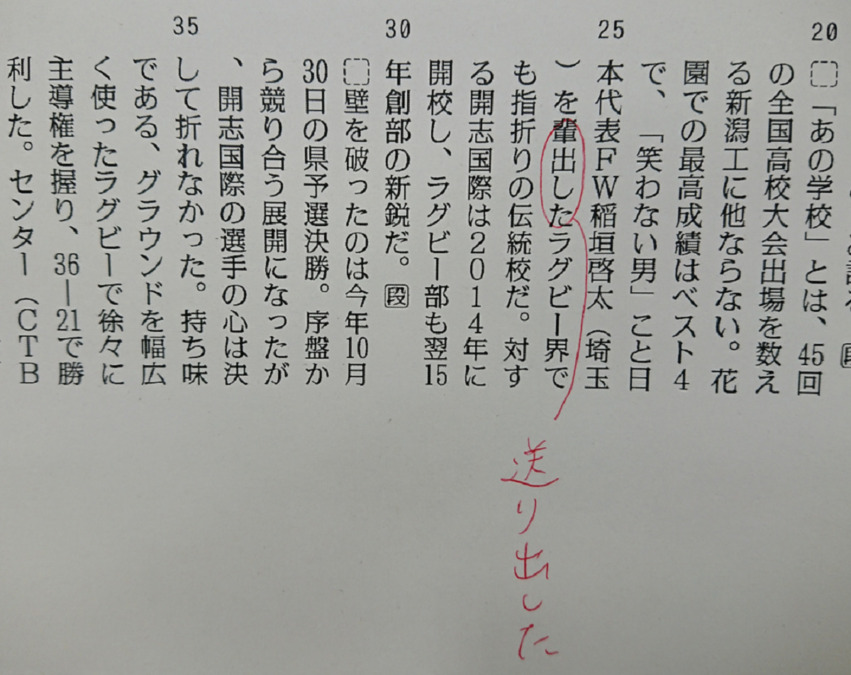 20
25
30
35
「あの学校」とは、45回
の全国高校大会出場を数え
る新潟工に他ならない。花
園での最高成績はベスト4
で、「笑わない男」こと日
本代表FW稲垣啓太(埼玉
)を輩出したラグビー界で
も指折りの伝統校だ。対す
る開志国際は2014年に
開校し、ラグビー部も翌15
年創部の新鋭だ。段
壁を破ったのは今年10月
30日の県予選決勝。序盤か
ら競り合う展開になったが
、開志国際の選手の心は決
して折れなかった。持ち味
である、グラウンドを幅広
く使ったラグビーで徐々に
主導権を握り、36―21で勝
利した。センター(CTB
送り出した